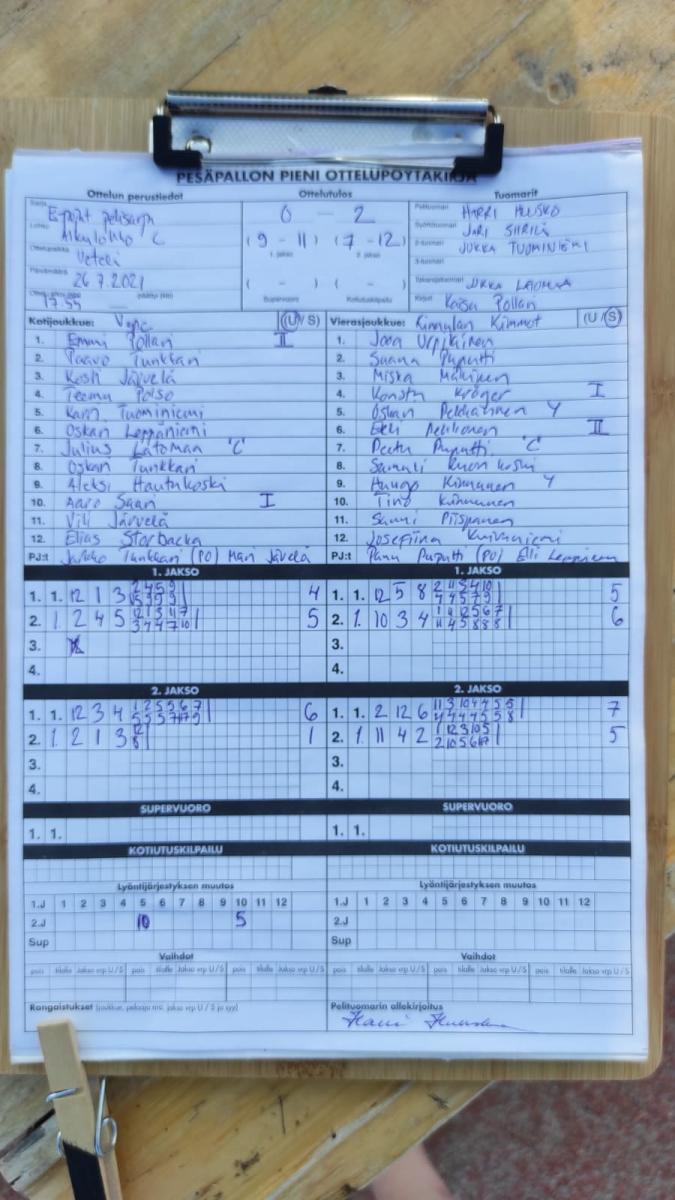 PESÄPALLON PIENI OTTELUPÖYTÄKIRJA
Ottelun perustiedot Ottelutulos Tuomarit
Sarja E-pojat
Lohko Alkulohko C
Ottelupaikka Veteli
Päivämäärä 26.7.2021
17.55
0 - 2
(9 - 11) (7 - 12)
1. jakso 2. jakso
( - ) ( - )
Supervuoro Kotiutuskilpailu
Pelituomari HARRI HUUSKO
Syöttötuomari JARI SIIRILÄ
2-tuomari JUKKA TUOMINIEMI
3-tuomari
Takarajatuomari JUKKA LATOMAA
Kirjuri Kaisa Pollari
Kotijoukkue: Vepe (U/S)
1. Emmi Pollari II
2. Paavo Tunkkari
3. Kosti Järvelä
4. Teemu Poiso
5. Karri Tuominiemi
6. Oskari Leppäniemi
7. Julius Latomaa 'C'
8. Oskari Tunkkari
9. Aleksi Hautakoski
10. Aaro Saari I
11. Vili Järvelä
12. Elias Storbacka
PJ:t Jarkko Tunkkari (PO) Mari Järvelä
Vierasjoukkue: Kinnulan Kiinnot (U/S)
1. Joona Urpilainen
2. Saana Puputti
3. Miska Mäkinen
4. Konsta Kröger I
5. Oskari Pekkarinen Y
6. Eeli II
7. Peetu Puputti 'C'
8. Samuli
9. Hugo Kinnunen Y
10. Tino Kinnunen
11. Sanni Piispanen
12. Josefiina
PJ:t Panu Puputti (PO) Elli
1. JAKSO
1. 1. 12 1 3 4
2. 1. 2 4 5 5
3.
4.
1. JAKSO
1. 1. 12 5 8 5
2. 1. 10 3 4 6
3.
4.
2. JAKSO
1. 1. 12 3 4 6
2. 1. 2 1 3 1
3.
4.
2. JAKSO
1. 1. 2 12 6 7
2. 1. 11 4 2 5
3.
4.
SUPERVUORO SUPERVUORO
1. 1. 1. 1.
KOTIUTUSKILPAILU KOTIUTUSKILPAILU
Lyöntijärjestyksen muutos Lyöntijärjestyksen muutos
1.J 1 2 3 4 5 6 7 8 9 10 11 12 1.J 1 2 3 4 5 6 7 8 9 10 11 12
2.J 10 5 2.J
Sup Sup
Vaihdot Vaihdot
pois tilalle Jakso vrp U/S pois tilalle Jakso vrp U/S pois tilalle Jakso vrp U/S pois tilalle Jakso vrp U/S pois tilalle Jakso vrp U/S pois tilalle Jakso vrp U/S
Rangaistukset (joukkue, pelaaja nro, jakso vrp U/S ja syy) Pelituomarin allekirjoitus